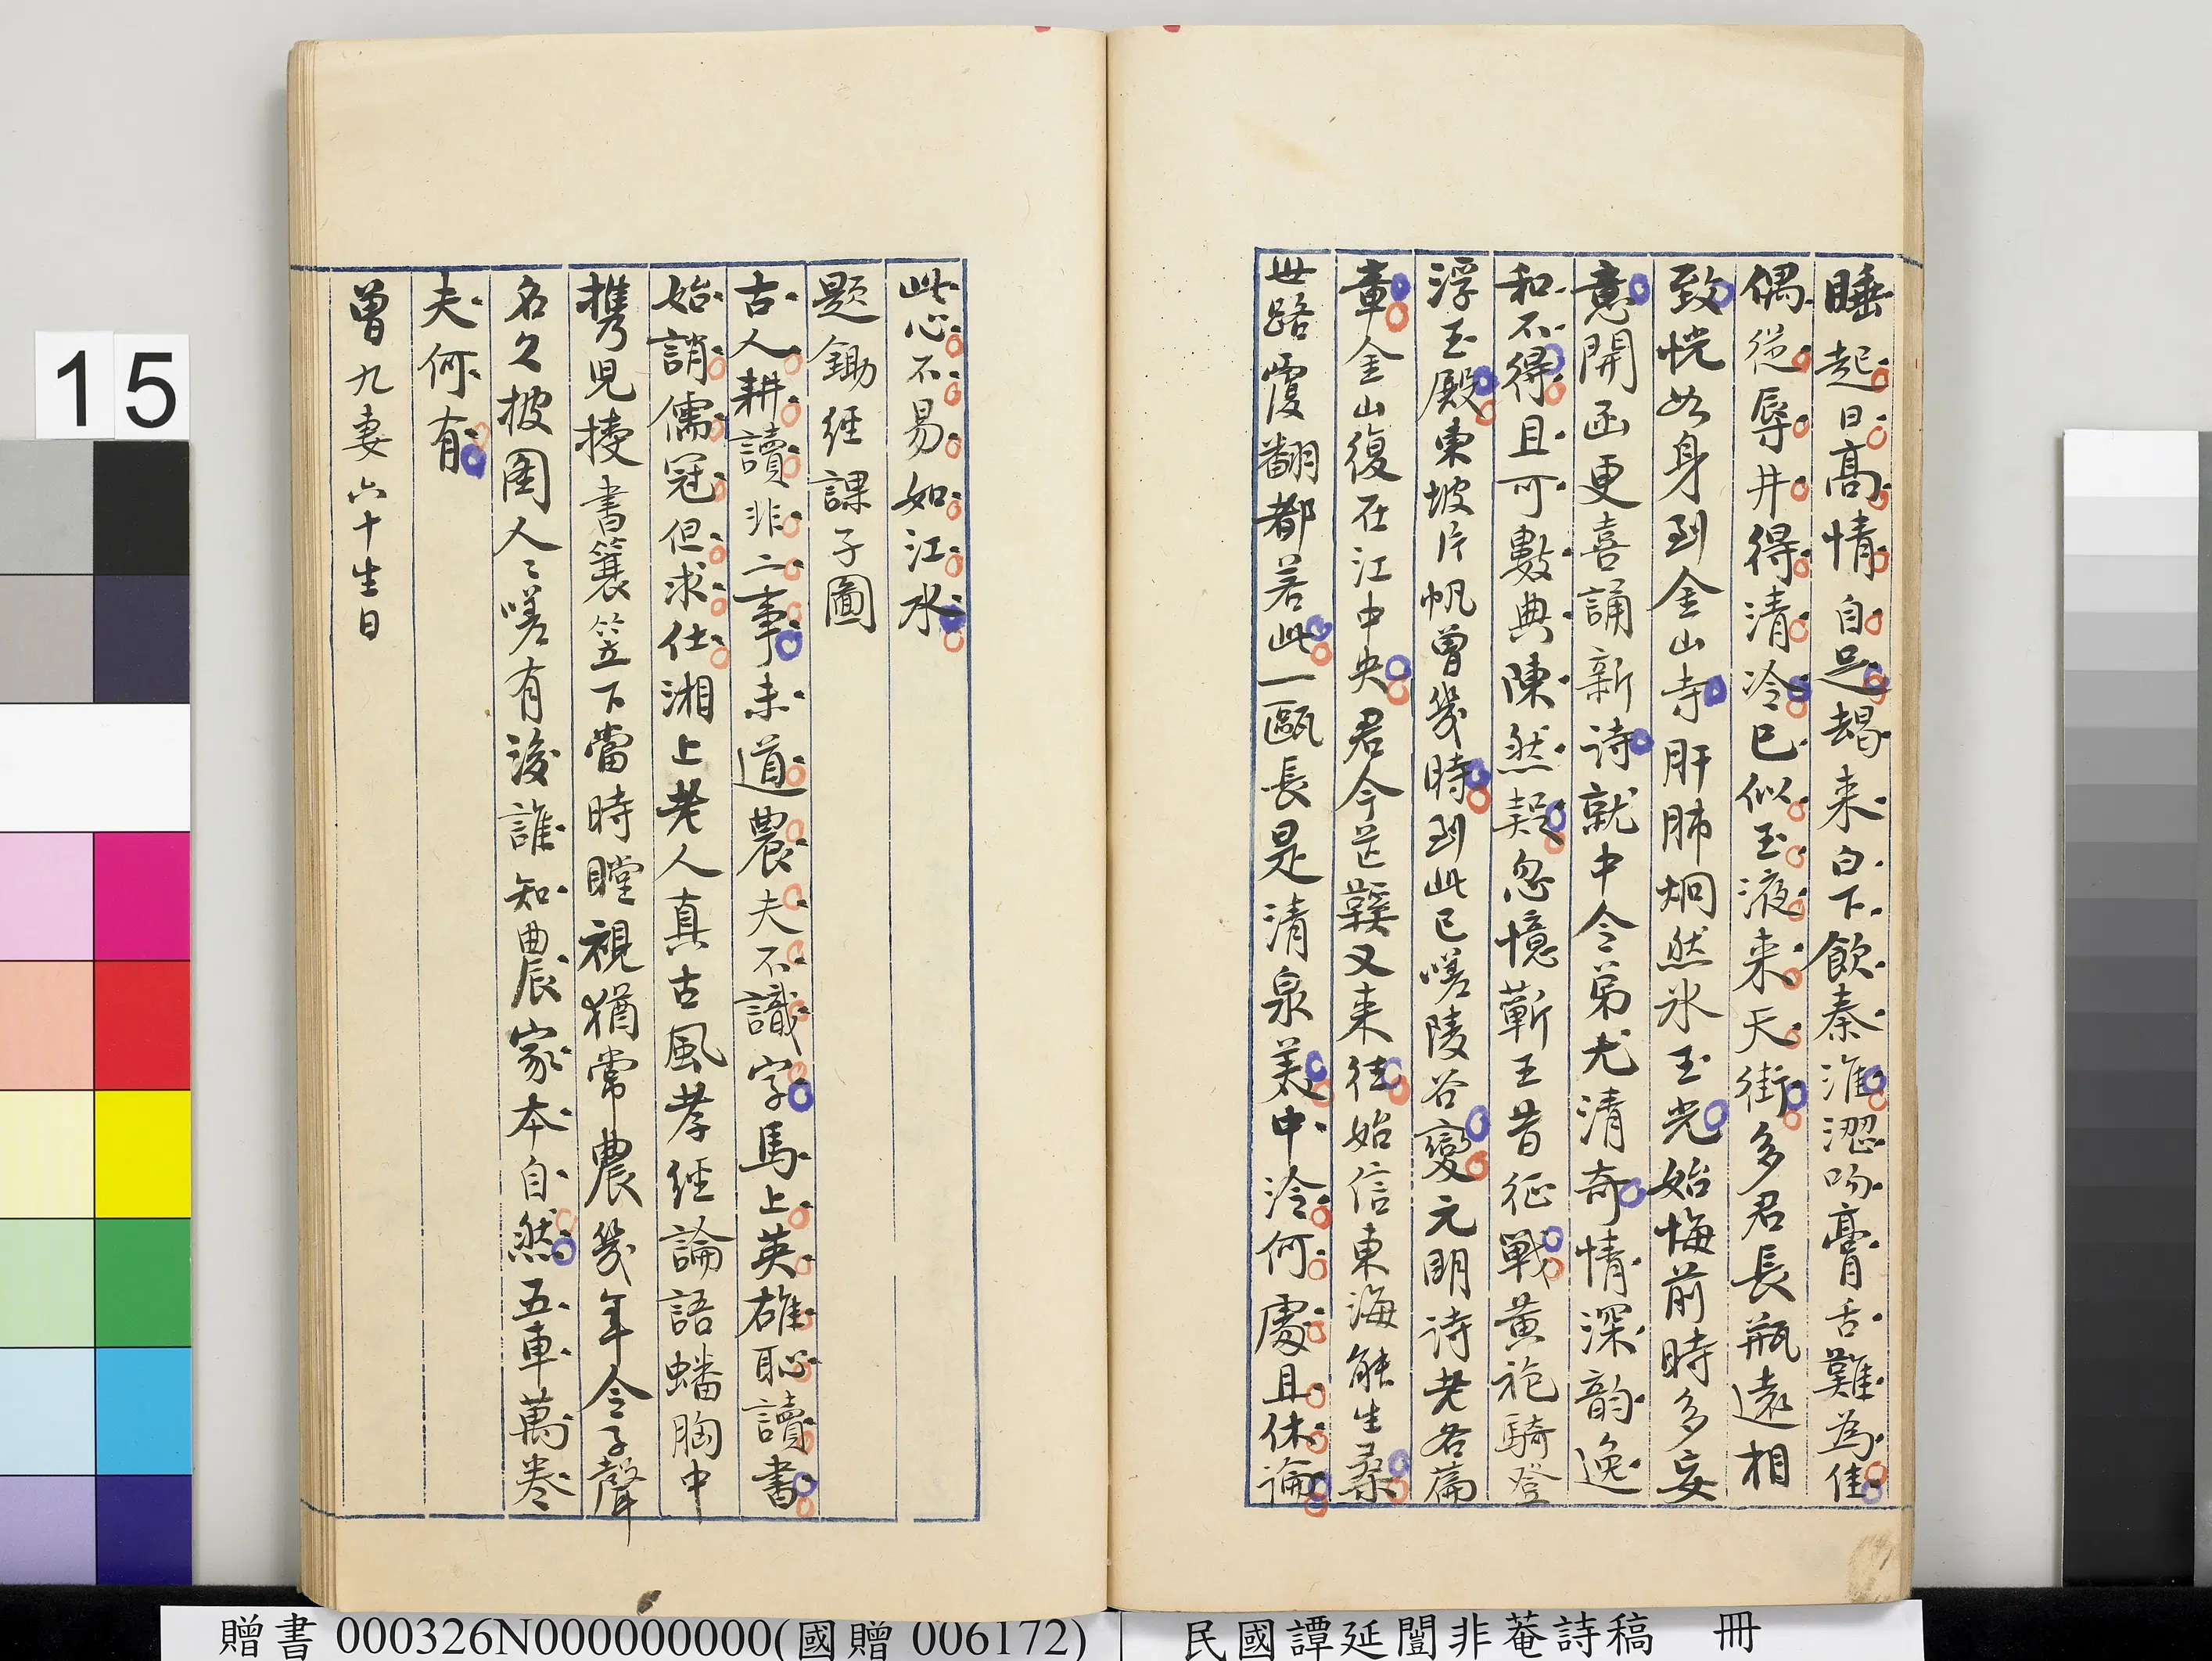 睡起日高情自足朅来白下飲秦淮澀吻膏舌難為佳
偶從辱井得清冷已似玉液来天街多君長瓶遠相
致恍如身到金山寺肝肺炯然冰玉光始悔前時多妄
意開函更喜誦新詩就中令弟尤清奇情深韵逸
和不得且可數典陳然疑忽憶蘄王昔征戰黄袍騎登
浮玉殿東坡片帆曾幾時到此已嗟陵谷變元明詩老各篇
章金山復在江中央君今芒鞵又来往始信東海能生桑
世路覆翻都若此一甌長是清泉美中泠何處且休論
此心不易如江水
題鋤經課子圖
古人耕讀非二事未道農夫不識字馬上英雄恥讀書
始誚儒冠但求仕湘上老人真古風孝經論語蟠胸中
携兒授書簑笠下當時瞠視猶常農幾年令子聲
名久披圖人〻嗟有後誰知農家本自然五車萬卷
夫何有
曾九妻六十生日
15
贈書 000326N000000000(國贈 006172)
民國譚延闓非菴詩稿 冊